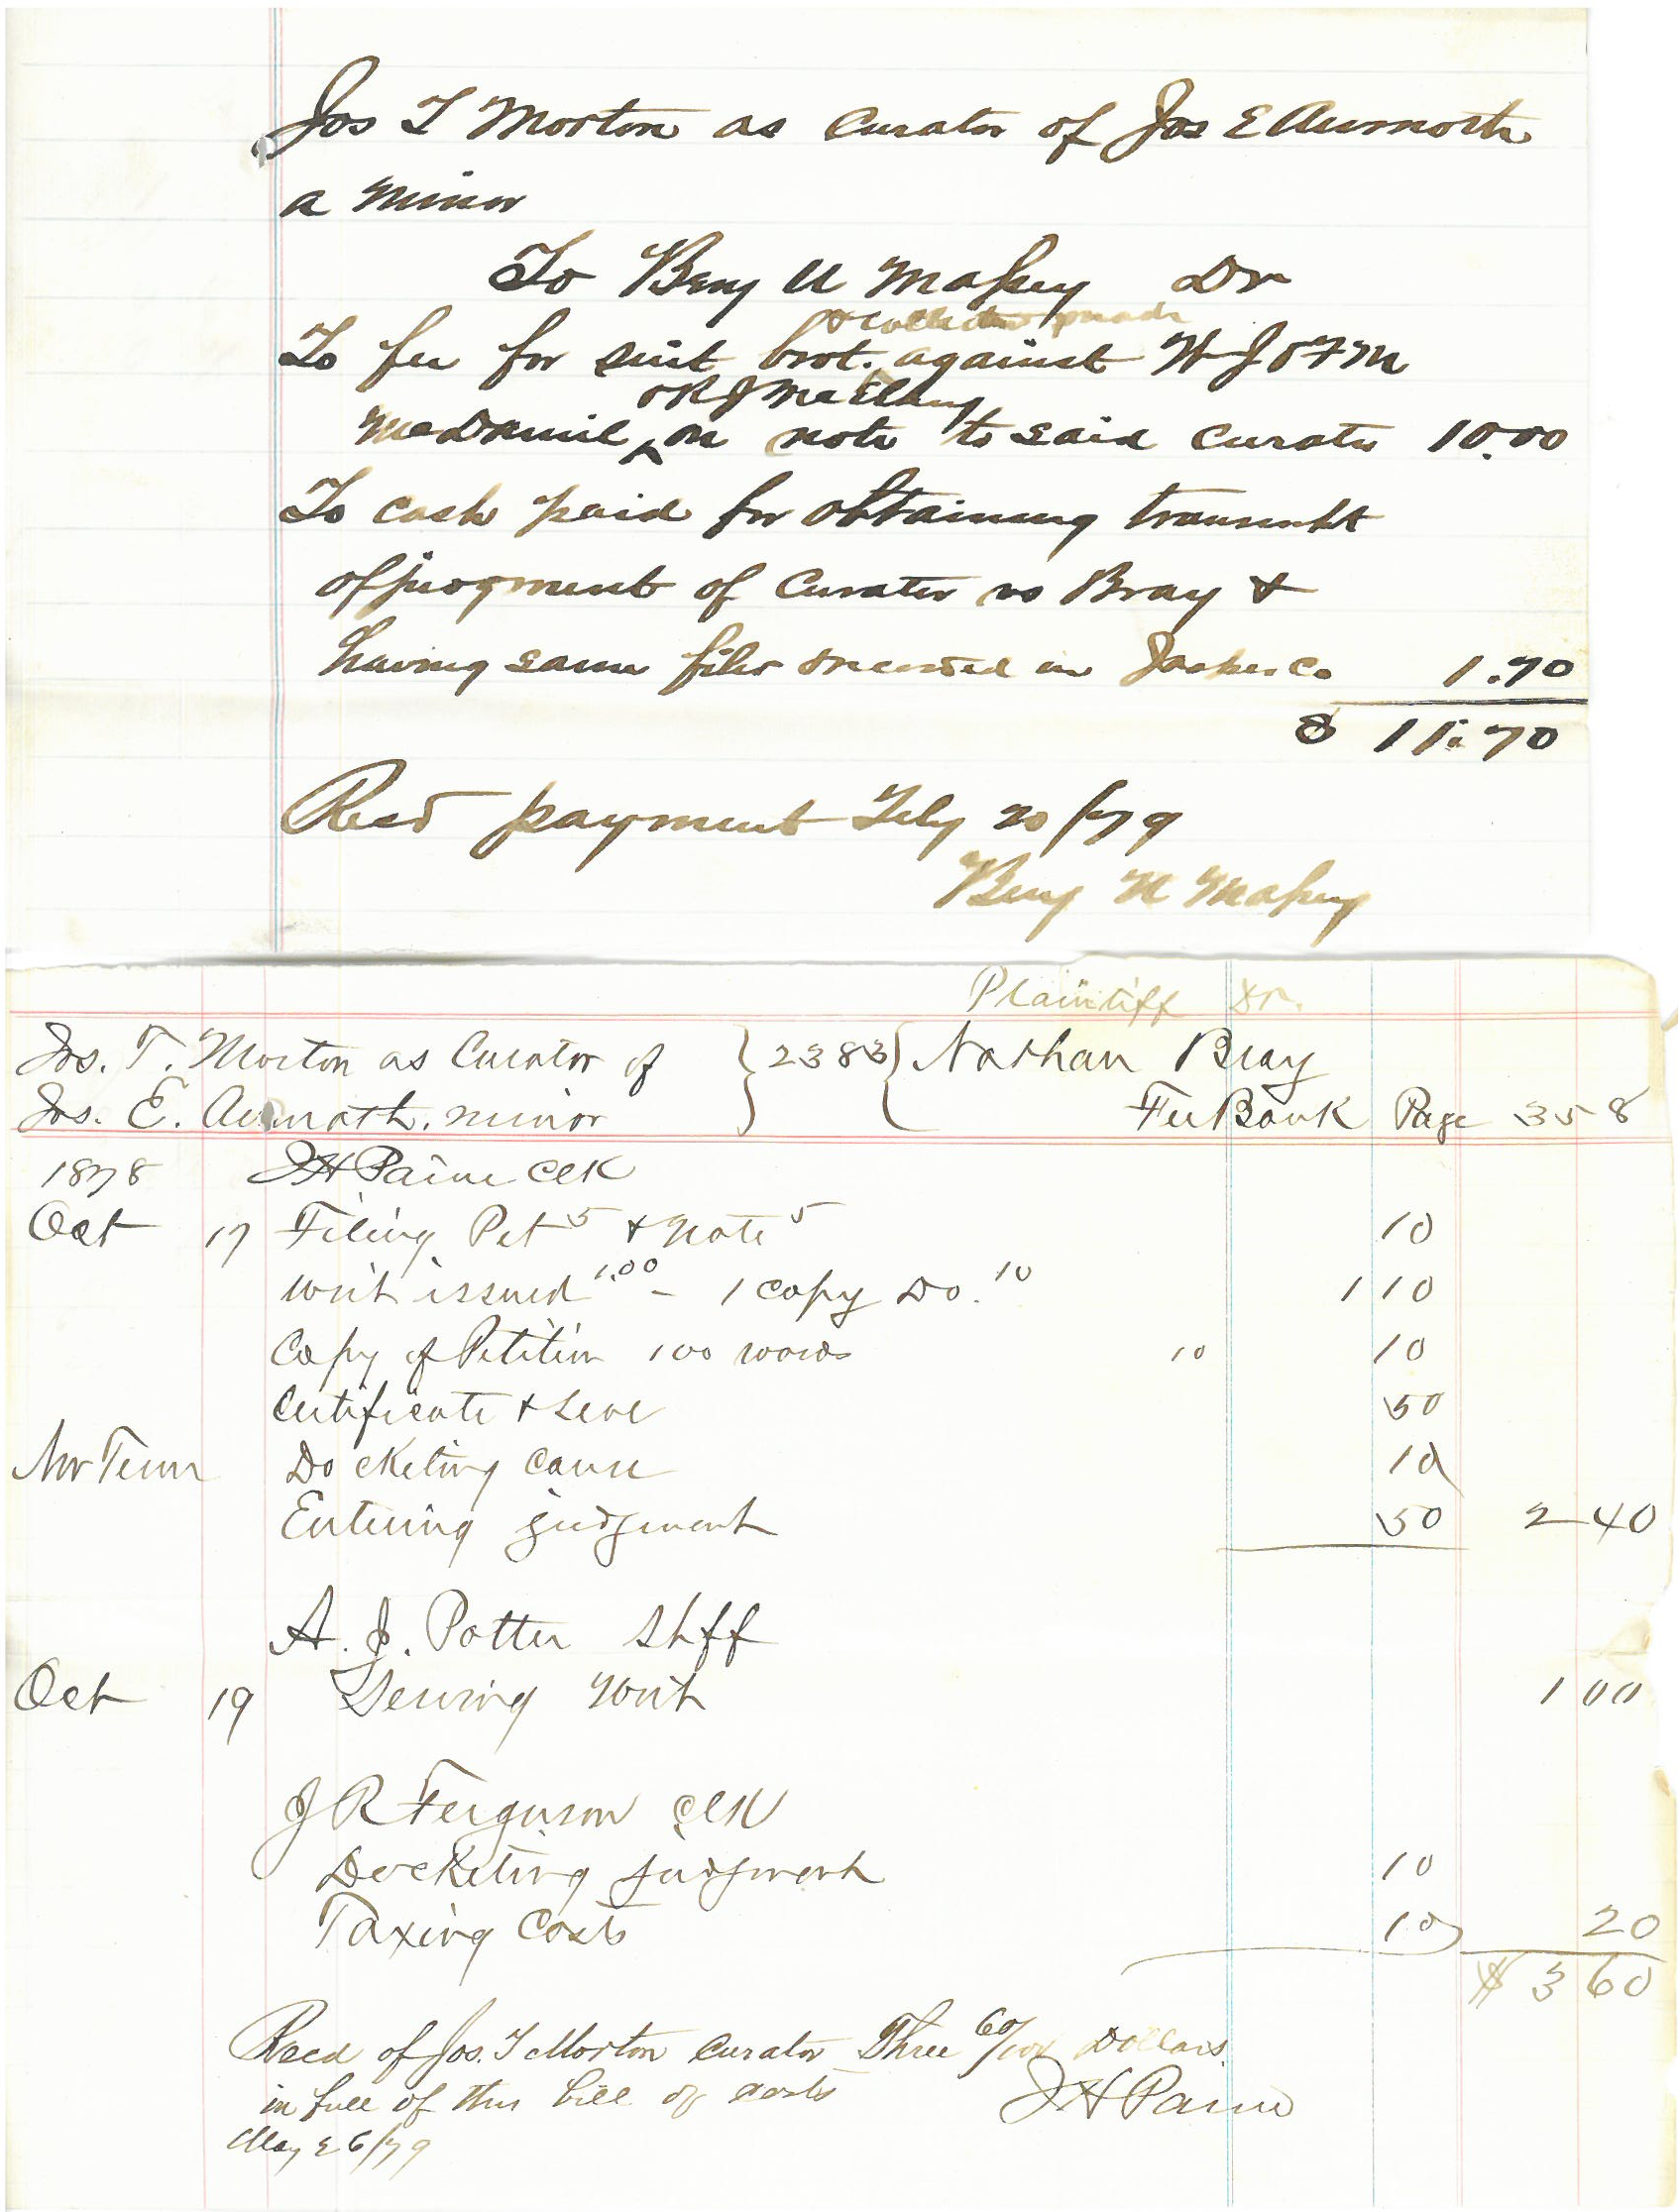 Jos T Morton as Curator of Jos E Aumoth
a minor
To Benj U Massey Dr
& collection made
To fee for suit brot. against W J & F M
& R J McElhany
McDaniel, on note to said Curator 10.00
To cash paid for obtaining transcript
of judgment of Curator vs Bray &
having same filed & recorded in Jasper Co 1.70
$ 11.70
Recd payment Feby 20/79
Benj U Massey
Plaintiff Dr.
Jos. T. Morton as Curator of } 2383 { Nathan Bray
Jos. E. Aumoth, minor Fee Book Page 358
1878 J H Paine Clk
Oct 17 Filing Pet 5 & Note 5 10
Writ issued 1.00 - 1 Copy Do. 10 1 10
Copy of Petition 100 words 10 10
Certificate & Seal 50
Nov Term Docketing Cause 10
Entering judgment 50 2 40
A. J. Potter Shff
Oct 19 Serving Writ 1 00
J R Ferguson Clk
Docketing judgment 10
Taxing Costs 10 20
$ 3 60
Recd of Jos. T Morton Curator Three 60/100 Dollars
in full of this bill of costs
J H Paine
May 26/79